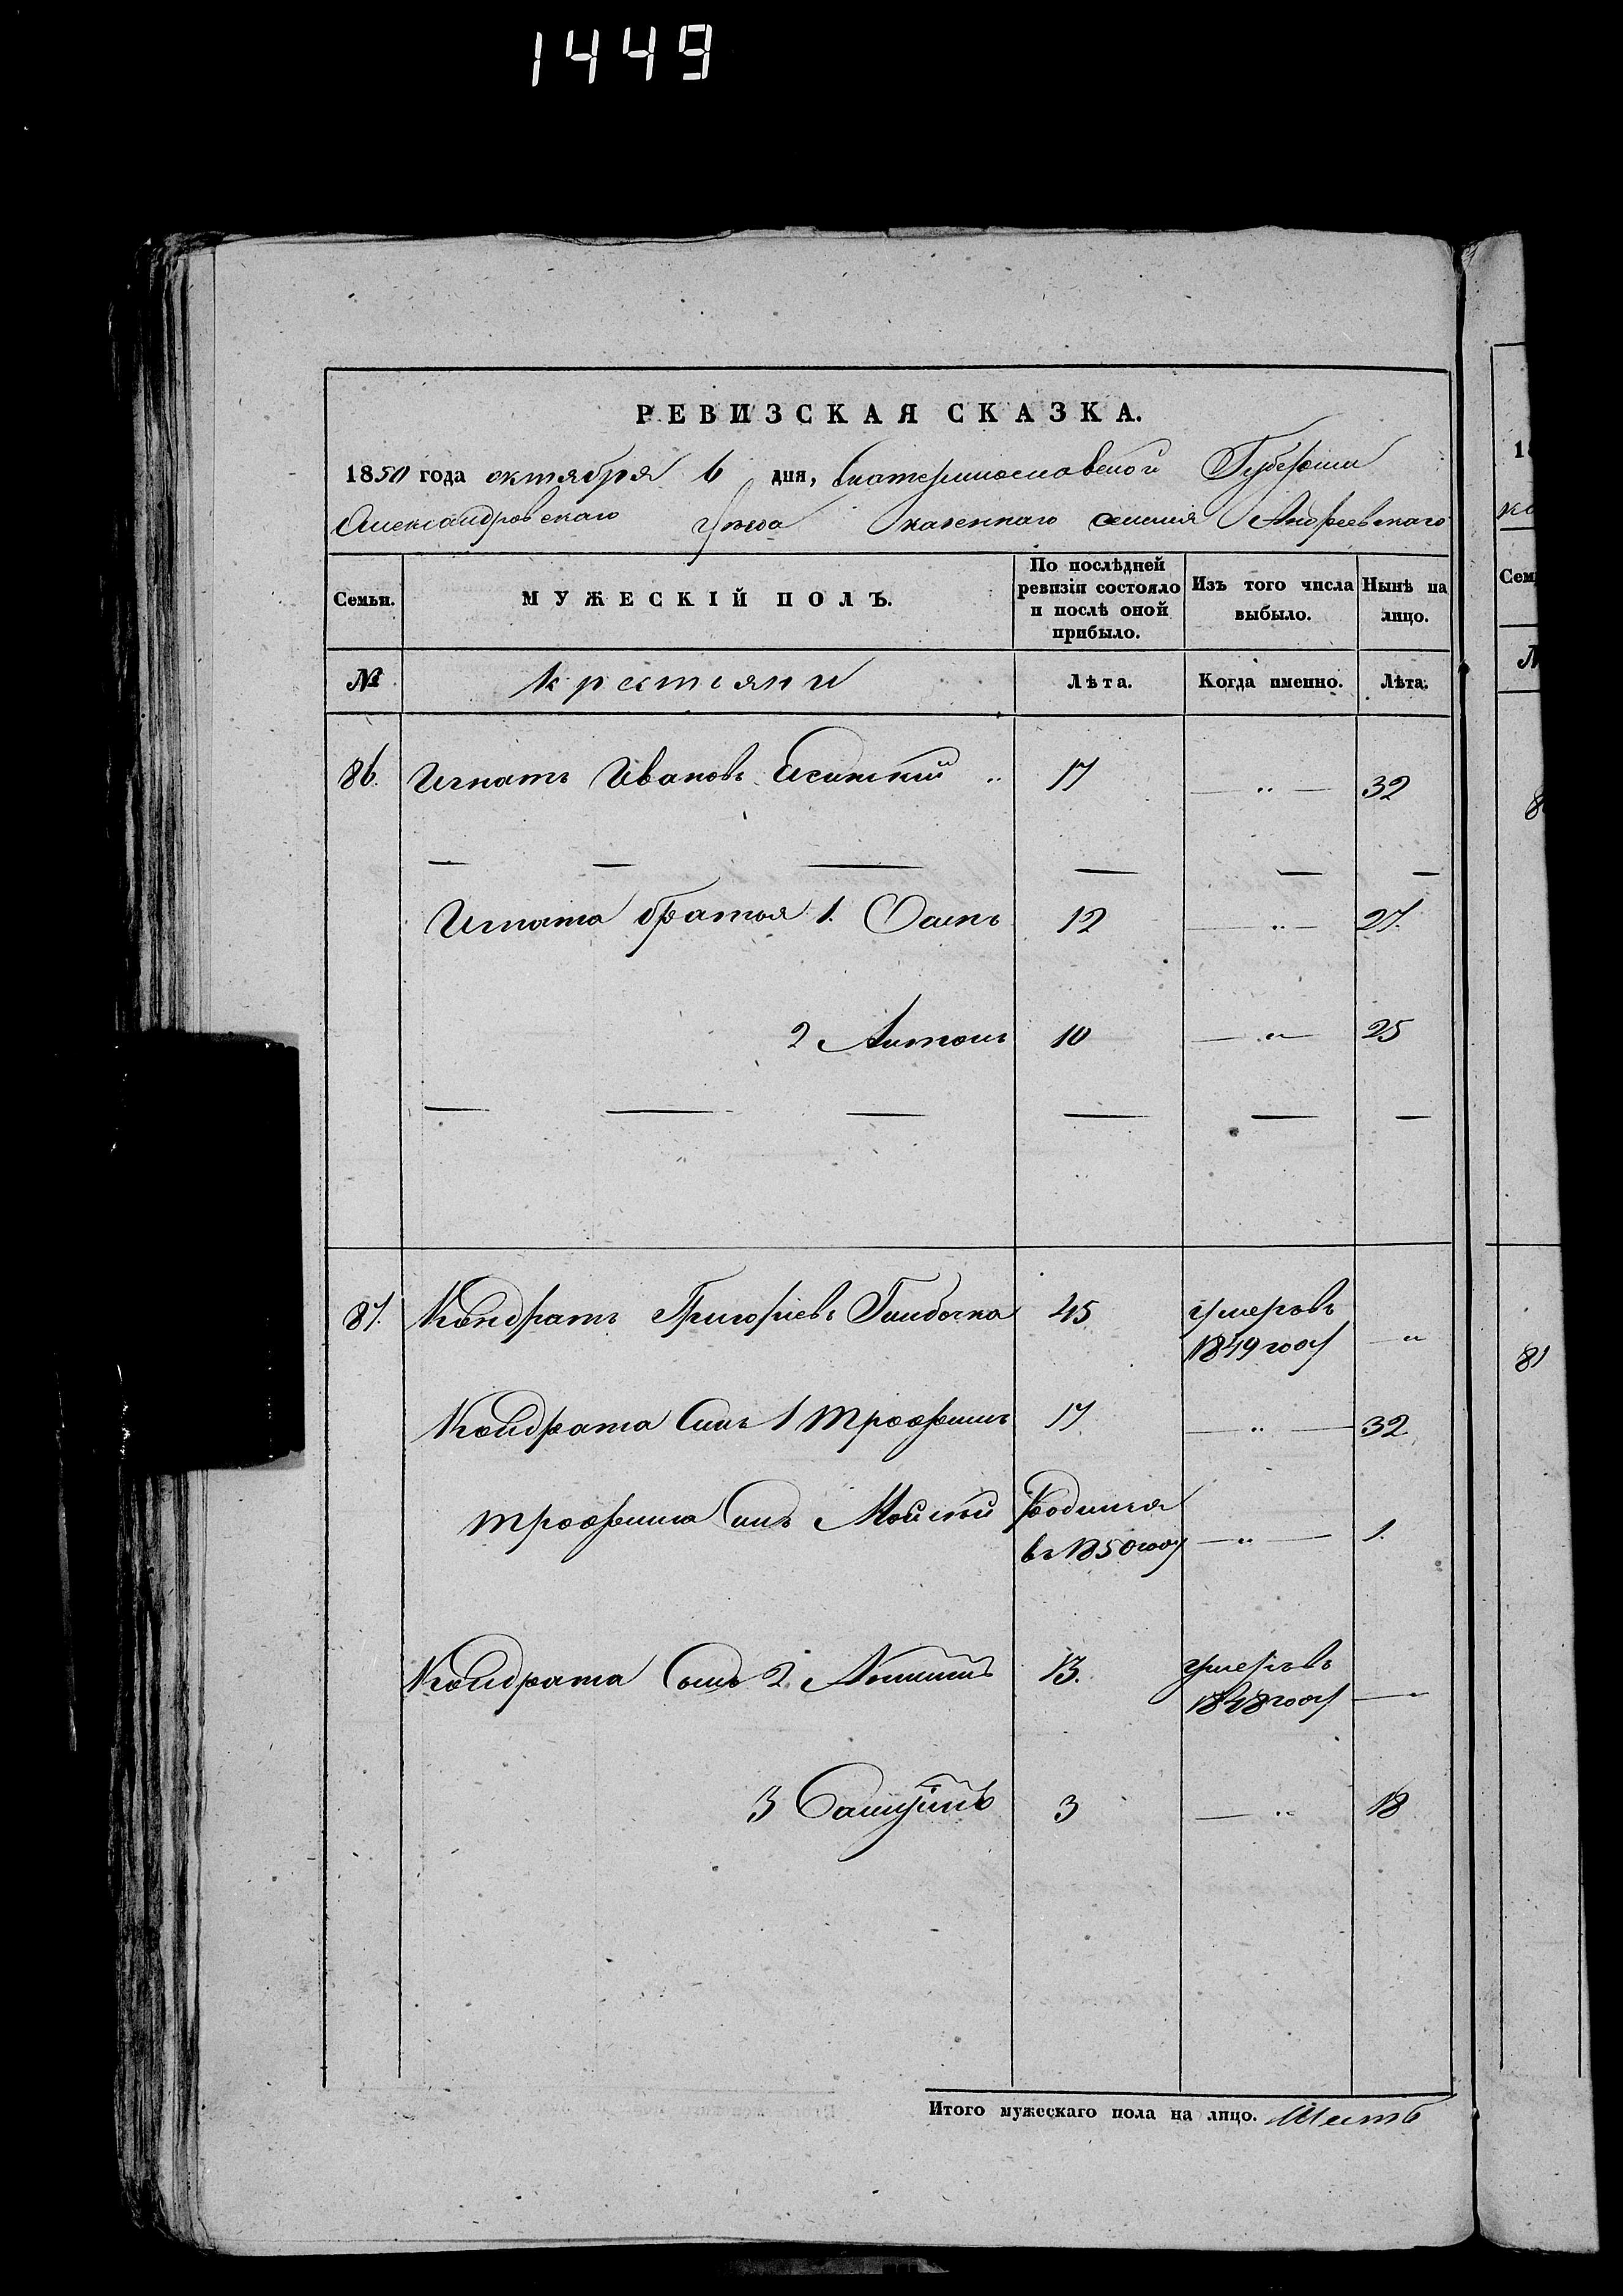 1449
РЕВИЗСКАЯ СКАЗКА.
1850 года октября 6 дня, Екатеринославской Губернии
Александровскаго Уезда казеннаго селения Андреевскаго
Семьи. МУЖЕСКІЙ ПОЛЪ. По послѣдней ревизіи состояло и послѣ оной прибыло. Изъ того числа выбыло. Нынѣ на лицо.
№ крестяни Лѣта. Когда именно. Лѣта.
86. Игнатъ Ивановъ 17 — „ — 32
Игната братья 1. Осипъ 12 — „ — 27.
2 Антонъ 10 — „ — 25
87. Кондратъ Григорiевъ 45 умеръ въ 1849 году — „
Кондрата Сынъ 1 Трофимъ 17 — „ — 32.
Трофима Сынъ Мойсей Родился въ 1850 году — „ — 1.
Кондрата Сынъ 2. 13. умеръ въ 1848 году — „
3 3 — „ 18
Итого мужескаго пола на лицо. Шесть